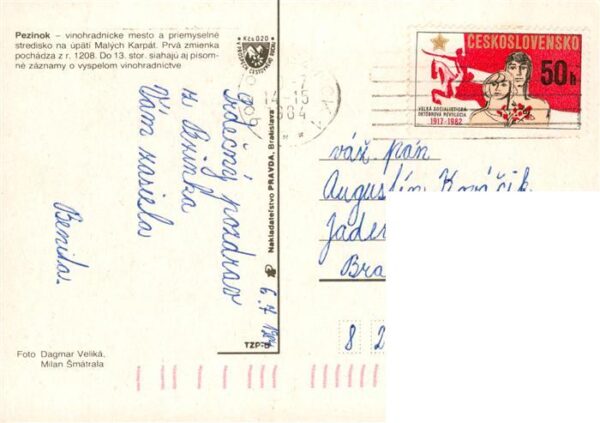 Pezinok – vinohradnícke mesto a priemyselné
stredisko na úpätí Malých Karpát. Prvá zmienka
pochádza z r. 1208. Do 13. stor. siahajú aj písom-
né záznamy o vyspelom vinohradníctve
Kčs 0,20
Srdečný pozdrav
z Pezinka
Vám zasiela
Benita.
6. 7.
Nakladateľstvo PRAVDA, Bratislava
TZP-
Foto Dagmar Veliká,
Milan Šmátrala
ČESKOSLOVENSKO
50 h
VEĽKÁ SOCIALISTICKÁ
OKTÓBROVÁ REVOLÚCIA
1917-1982
váž. pan
Augustín Kováčik
Jader
Bra
8 2